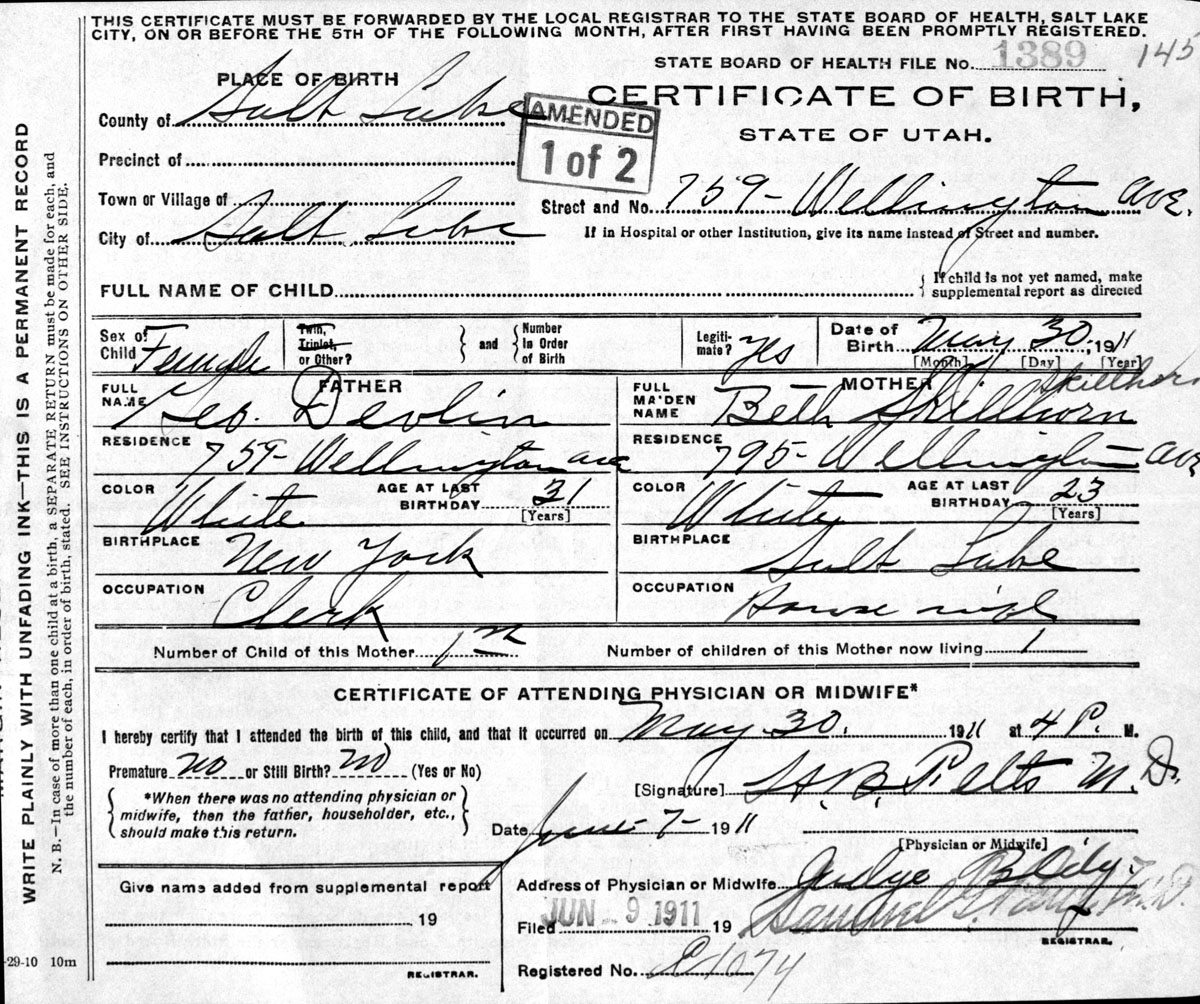 THIS CERTIFICATE MUST BE FORWARDED BY THE LOCAL REGISTRAR TO THE STATE BOARD OF HEALTH, SALT LAKE
CITY, ON OR BEFORE THE 5TH OF THE FOLLOWING MONTH, AFTER FIRST HAVING BEEN PROMPTLY REGISTERED.
STATE BOARD OF HEALTH FILE No. 1389 145
PLACE OF BIRTH
CERTIFICATE OF BIRTH,
STATE OF UTAH.
County of Salt Lake
AMENDED
1 of 2
Precinct of
Town or Village of
Street and No. 759- Wellington Ave.
City of Salt Lake
If in Hospital or other Institution, give its name instead of Street and number.
FULL NAME OF CHILD
{ If child is not yet named, make
supplemental report as directed
Sex of Child Female
Twin, Triplet, or Other? } and { Number In Order of Birth
Legitimate? Yes
Date of Birth May 30, 1911
[Month] [Day] [Year]
FATHER
FULL NAME Geo. Devlin
MOTHER
FULL MAIDEN NAME Beth Skillhorn
RESIDENCE 759- Wellington ave
RESIDENCE 795- Wellington ave
COLOR White AGE AT LAST BIRTHDAY 31 [Years]
COLOR White AGE AT LAST BIRTHDAY 23 [Years]
BIRTHPLACE New York
BIRTHPLACE Salt Lake
OCCUPATION Clerk
OCCUPATION House wife
Number of Child of this Mother 1st
Number of children of this Mother now living 1
CERTIFICATE OF ATTENDING PHYSICIAN OR MIDWIFE*
I hereby certify that I attended the birth of this child, and that it occurred on May 30, 1911 at 4 P. M.
Premature no or Still Birth? no (Yes or No)
[Signature] H. B. Pelts M. D.
{ *When there was no attending physician or
midwife, then the father, householder, etc.,
should make this return. }
Date June 7- 1911
[Physician or Midwife]
Address of Physician or Midwife Judge Bldg.
Give name added from supplemental report
19
REGISTRAR.
Filed JUN -9 1911 19 Samuel G. M.D.
REGISTRAR.
Registered No.
-29-10 10m
WRITE PLAINLY WITH UNFADING INK—THIS IS A PERMANENT RECORD
N. B.—In case of more than one child at a birth, a SEPARATE RETURN must be made for each, and
the number of each, in order of birth, stated. SEE INSTRUCTIONS ON OTHER SIDE.